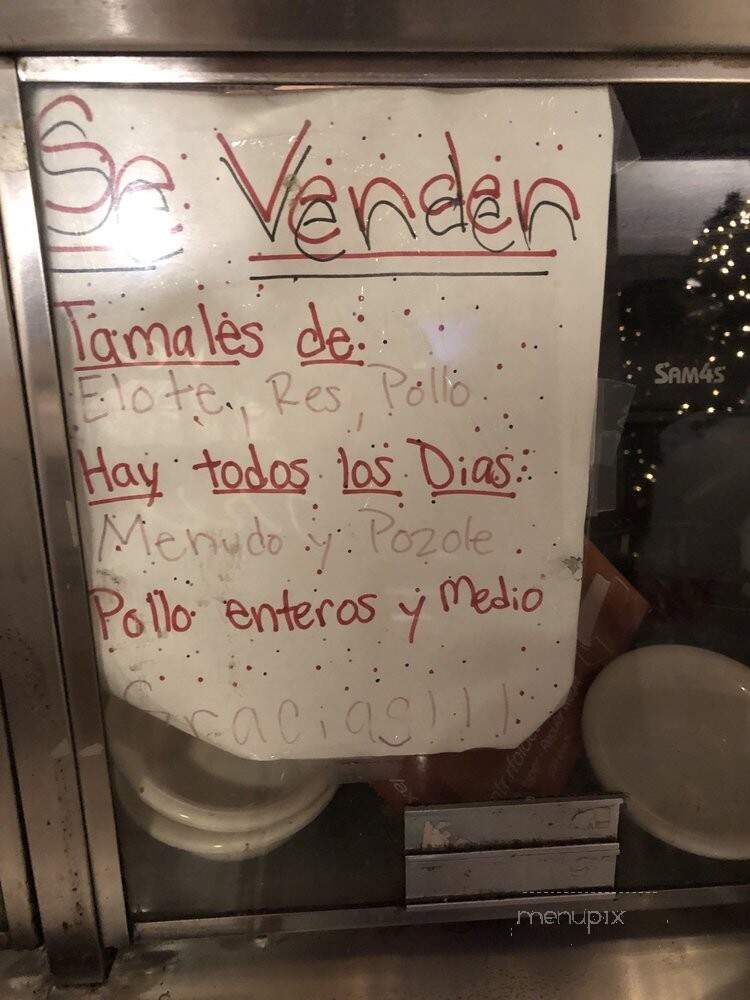 Se Venden
Tamales de:
Elote, Res, Pollo.
Hay todos los Dias:
Menudo y Pozole
Pollo enteros y Medio
Gracias!!!
SAM4S
menupix